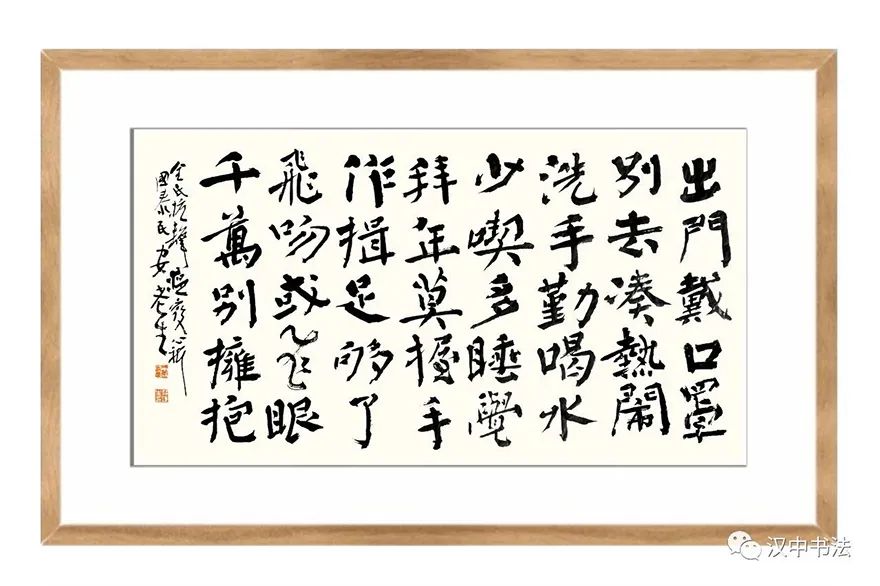 出門戴口罩
別去湊熱鬧
洗手勤喝水
少喫多睡覺
拜年莫握手
作揖足够了
飛吻或飞眼
千萬別擁抱
全民抗擊
國泰民安
汉中书法